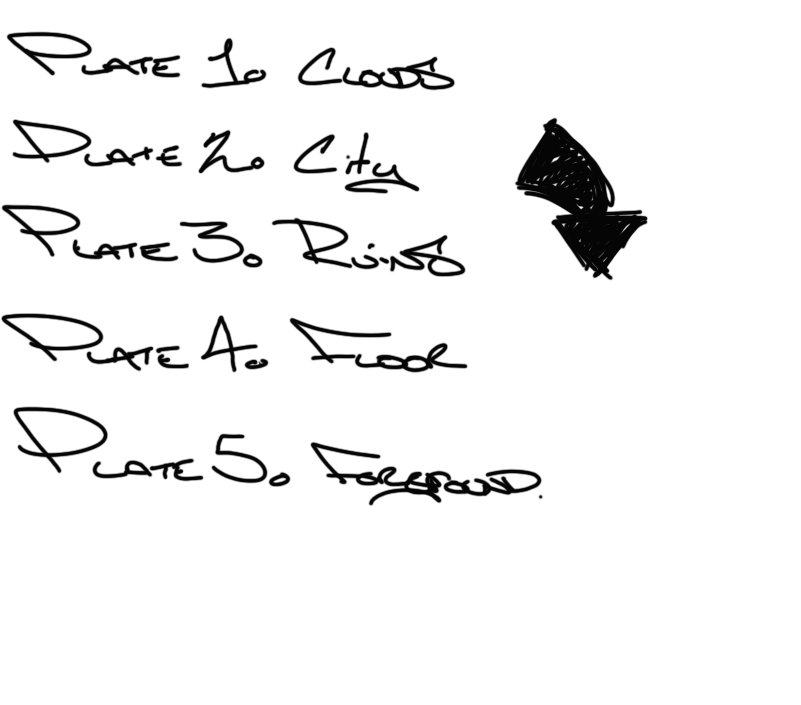 PLATE 1. CLOUDS
PLATE 2. City
PLATE 3. RUiNS
PLATE 4. FLOOR
PLATE 5. FOREGROUND.